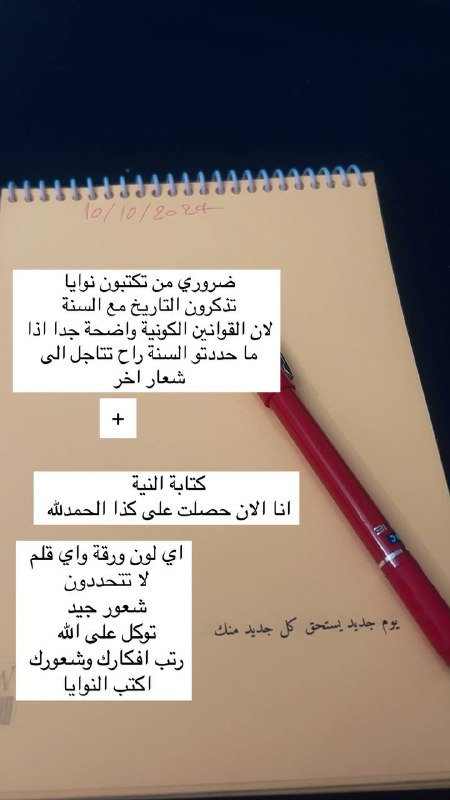 10/10/2024
ضروري من تكتبون نوايا
تذكرون التاريخ مع السنة
لان القوانين الكونية واضحة جدا اذا
ما حددتو السنة راح تتاجل الى
شعار اخر
+
كتابة النية
انا الان حصلت على كذا الحمدلله
اي لون ورقة واي قلم
لا تتحددون
شعور جيد
توكل على الله
رتب افكارك وشعورك
اكتب النوايا
يوم جديد يستحق كل جديد منك